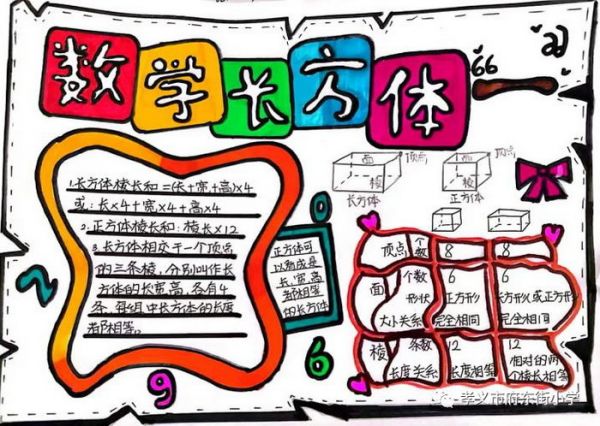 数学长方体
66
1.长方体棱长和=(长+宽+高)×4
或:长×4+宽×4+高×4
2.正方体棱长和:棱长×12
3.长方体相交于一个顶点
的三条棱,分别叫作长
方体的长宽高,各有4
条,每组中长方体的长度
都相等。
2
9
6
正方体可
以看成是
长、宽、高
都相等
的长方体
面
顶点
棱
长方体
面
顶点
棱
正方体
顶点 个数 8 8
面 个数 6 6
形状 正方形 长方形或正方形
大小关系 完全相同 完全相同
棱 条数 12 12
长度关系 长度相等 相对的四
个棱长相等
孝义市府东街小学